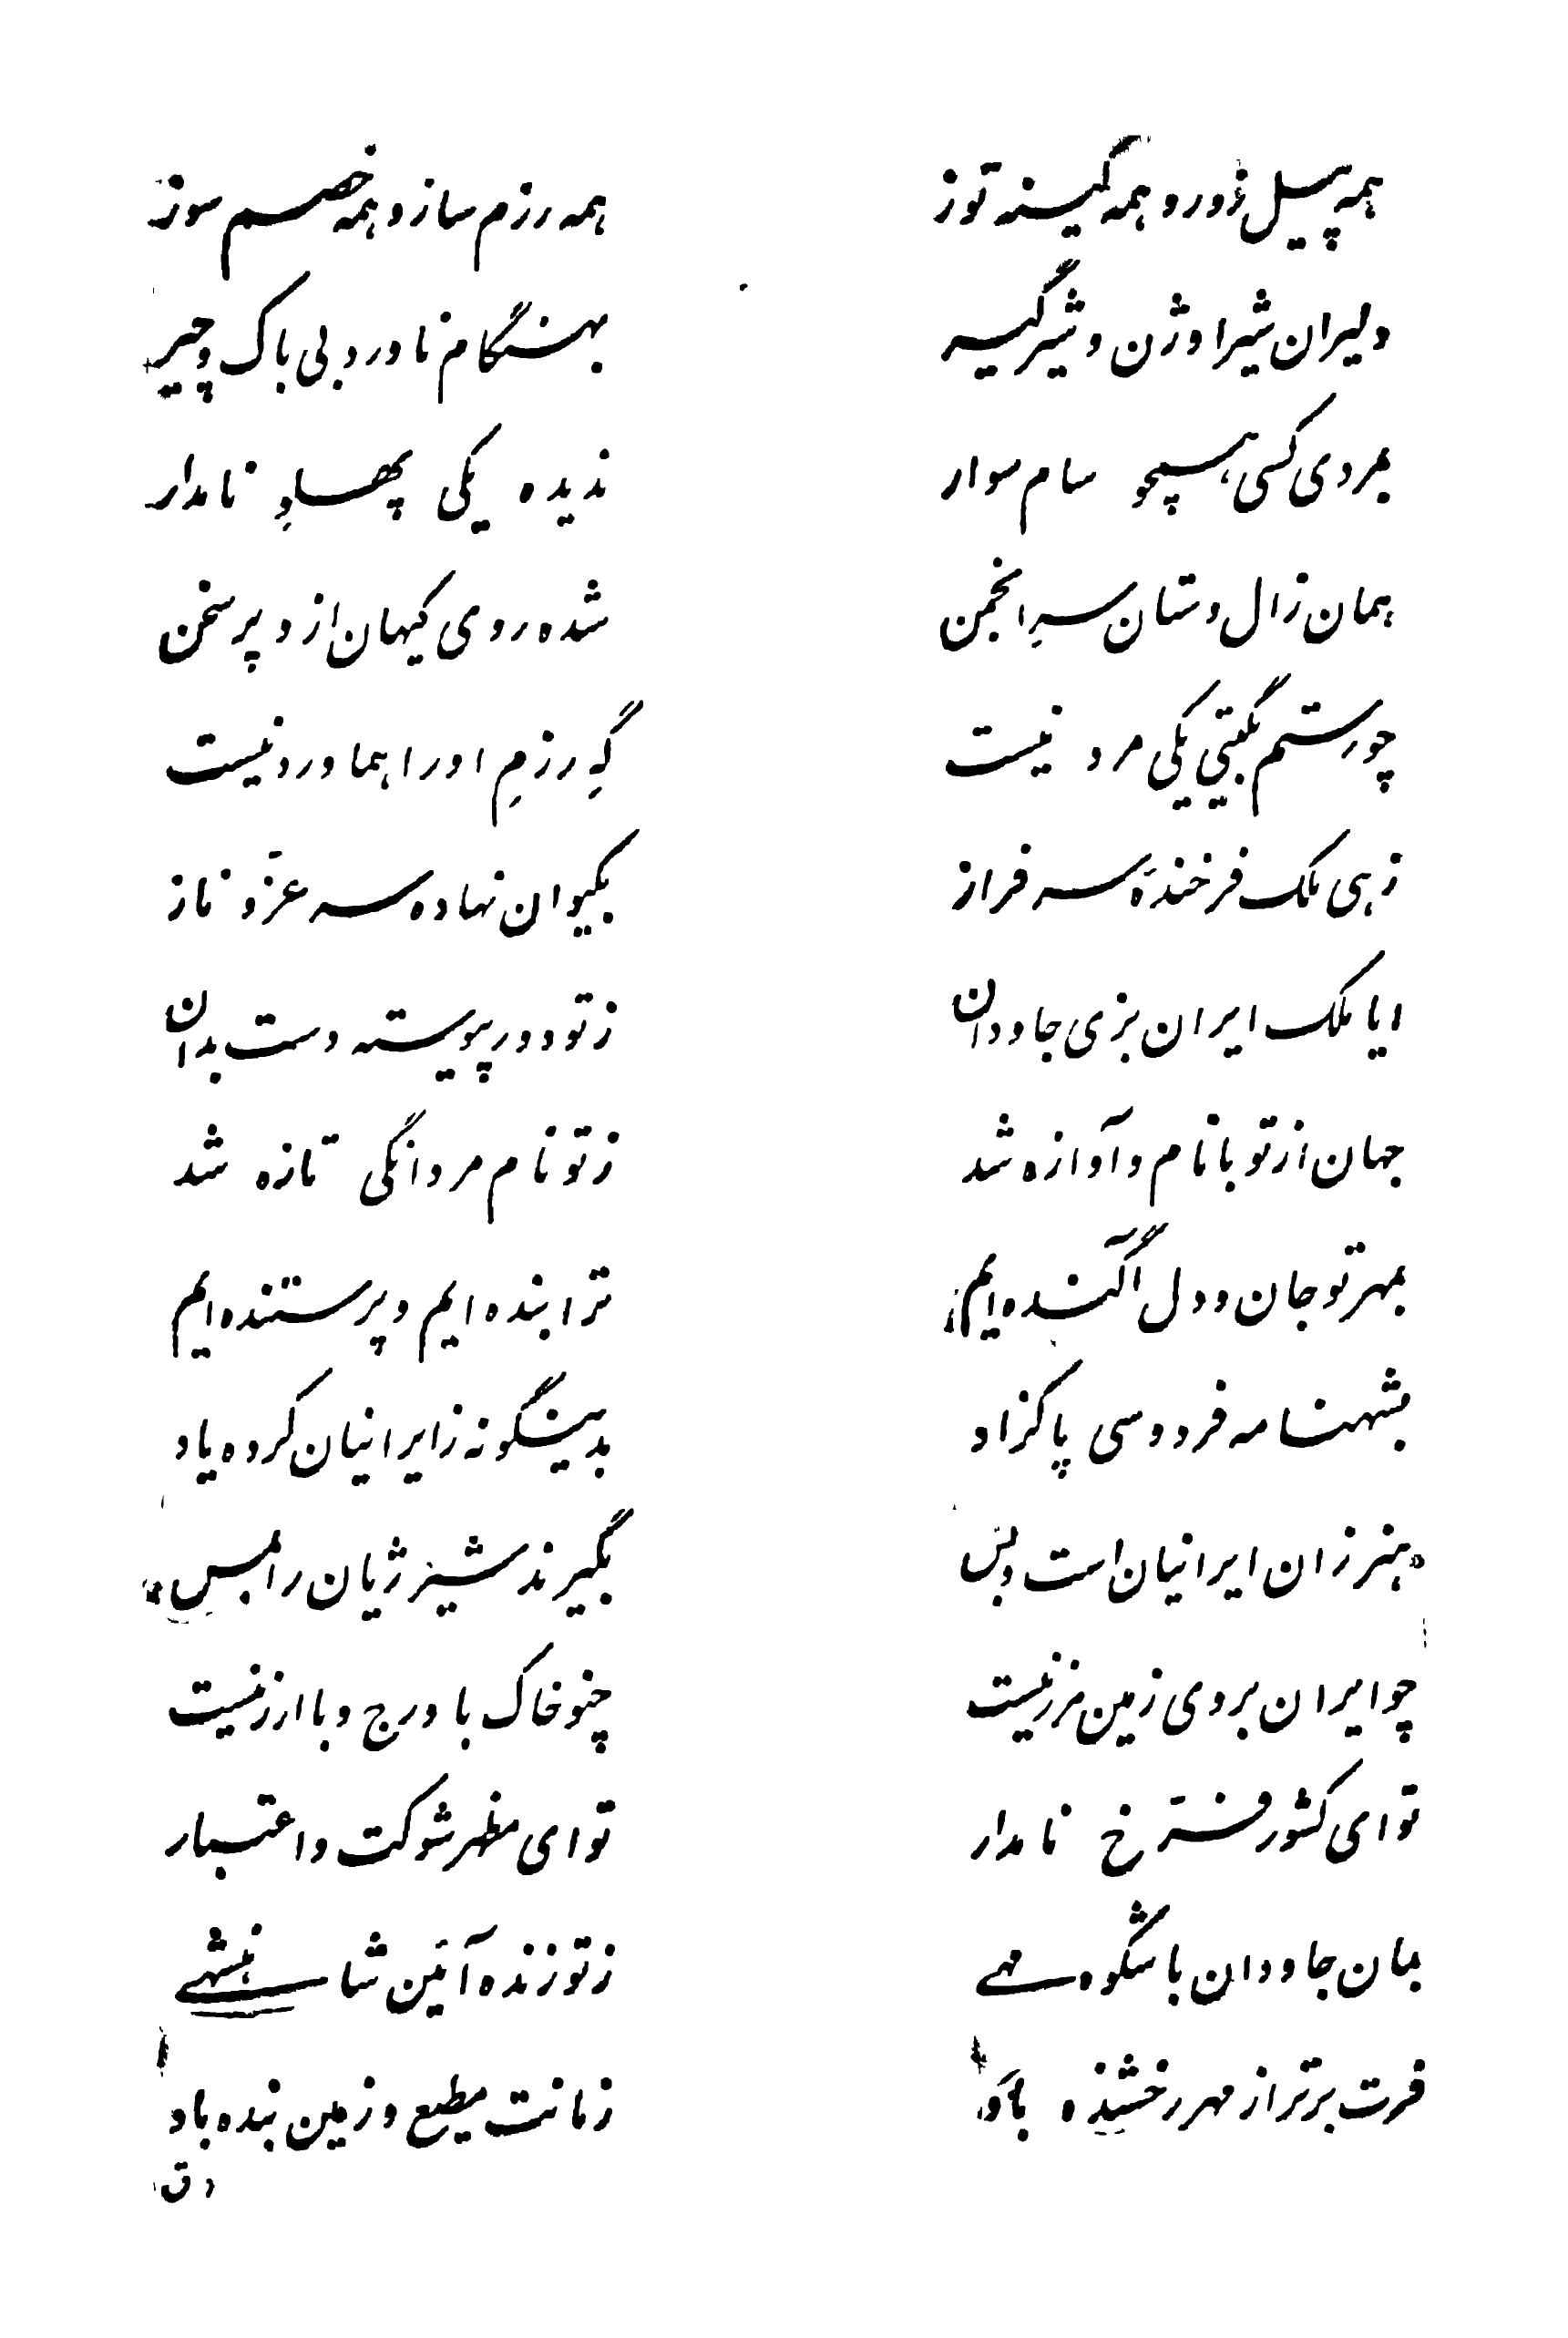 همه پیل زور و همه کینه توز همه رزم ساز و همه خصم سوز
دلیران شیر اوژن و شیر گیر بهنگام ناورد بی باک و چیر
بمردی کسی همچو سام سوار ندیده یکی پهلوِ نامدار
همان زال دستان سرِ انجمن شده روی کیهان از و پر سخن
چو رستم بگیتی یکی مرد نیست گهِ رزمِ او را هماورد نیست
زهی ملک فرخندهٔ سرفراز بکیوان نهاده سر عزّ و ناز
ایا ملک ایران بزی جاودان ز تو دور پیوسته دست بدان
جهان از تو با نام و آوازه شد ز تو نام مردانگی تازه شد
بمهر تو جان و دل آکنده ایم ترا بنده ایم و پرستنده ایم
بشهنامه فردوسی پاکزاد بدینگونه ز ایرانیان کرده یاد
«هنر زان ایرانیان است و بس بگیرند شیر ژیان را بس»
چو ایران بروی زمین مرز نیست چنو خاک با ورج و با ارز نیست
تو ای کشور فرّخ نامدار تو ای مظهر شوکت و اعتبار
بمان جاودان با شکوه مهی ز تو زنده آئین شاهنشهی
فرت برتر از مهر رخشنده باد زمانت مطیع و زمین بنده باد
(ق)